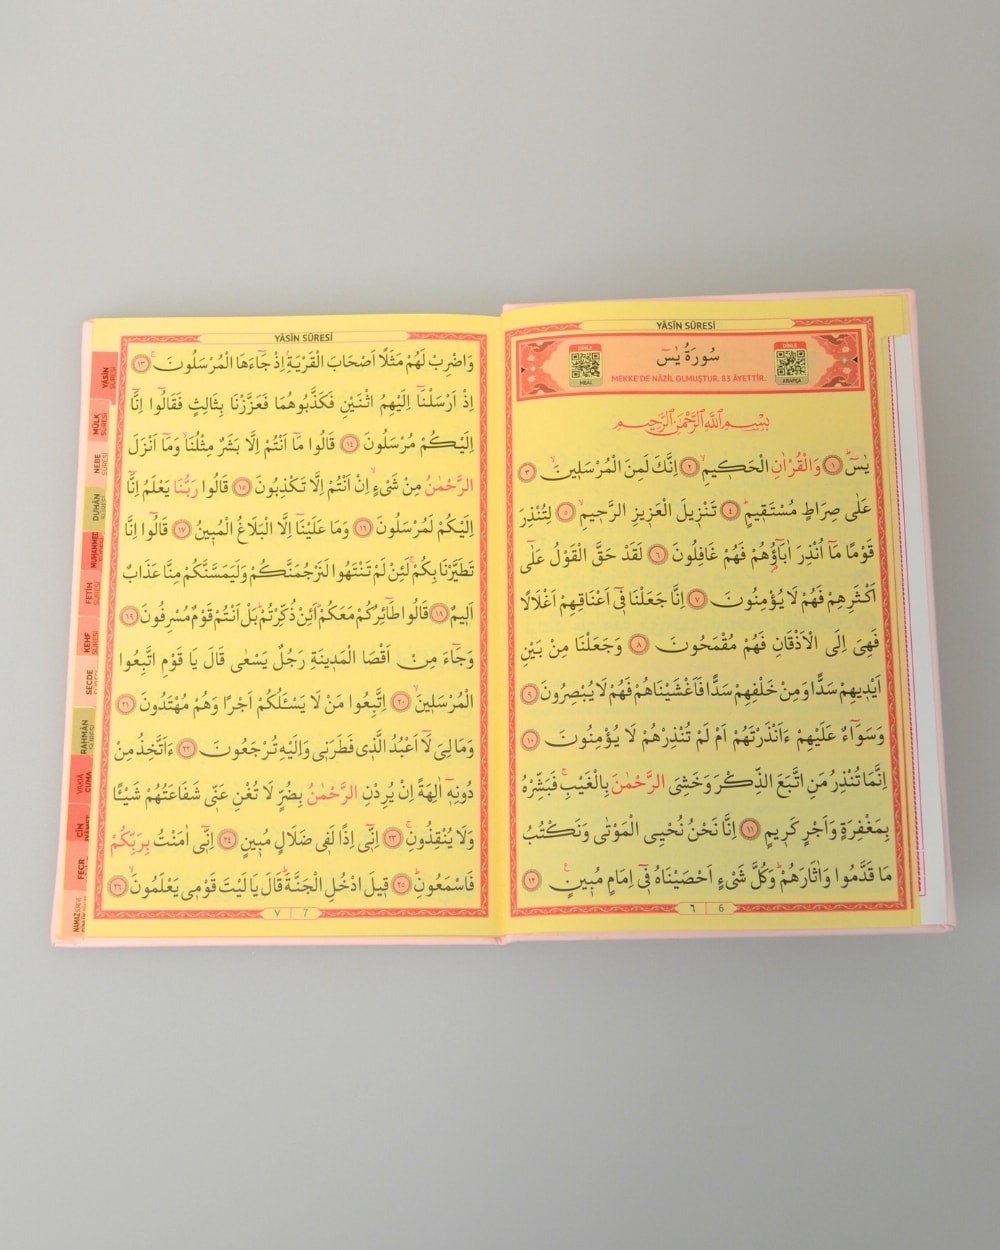 YÂSÎN SÛRESİ
DİNLE
MEAL
سُورَةُ يٰسٓ
DİNLE
ARAPÇA
MEKKE'DE NÂZİL OLMUŞTUR. 83 ÂYETTİR.
بِسْمِ اللّٰهِ الرَّحْمٰنِ الرَّحِيمِ
يٰسٓۜ ﴿١﴾ وَالْقُرْاٰنِ الْحَكٖيمِۙ ﴿٢﴾ اِنَّكَ لَمِنَ الْمُرْسَلٖينَۙ ﴿٣﴾
عَلٰى صِرَاطٍ مُسْتَقٖيمٍۜ ﴿٤﴾ تَنْزٖيلَ الْعَزٖيزِ الرَّحٖيمِۙ ﴿٥﴾ لِتُنْذِرَ
قَوْمًا مَٓا اُنْذِرَ اٰبَٓاؤُ۬هُمْ فَهُمْ غَافِلُونَ ﴿٦﴾ لَقَدْ حَقَّ الْقَوْلُ عَلٰٓى
اَكْثَرِهِمْ فَهُمْ لَا يُؤْمِنُونَ ﴿٧﴾ اِنَّا جَعَلْنَا فٖٓى اَعْنَاقِهِمْ اَغْلَالًا
فَهِىَ اِلَى الْاَذْقَانِ فَهُمْ مُقْمَحُونَ ﴿٨﴾ وَجَعَلْنَا مِنْ بَيْنِ
اَيْدٖيهِمْ سَدًّا وَمِنْ خَلْفِهِمْ سَدًّا فَاَغْشَيْنَاهُمْ فَهُمْ لَا يُبْصِرُونَ ﴿٩﴾
وَسَوَٓاءٌ عَلَيْهِمْ ءَاَنْذَرْتَهُمْ اَمْ لَمْ تُنْذِرْهُمْ لَا يُؤْمِنُونَ ﴿١٠﴾
اِنَّمَا تُنْذِرُ مَنِ اتَّبَعَ الذِّكْرَ وَخَشِىَ الرَّحْمٰنَ بِالْغَيْبِۚ فَبَشِّرْهُ
بِمَغْفِرَةٍ وَاَجْرٍ كَرٖيمٍ ﴿١١﴾ اِنَّا نَحْنُ نُحْيِى الْمَوْتٰى وَنَكْتُبُ
مَا قَدَّمُوا وَاٰثَارَهُمْۜ وَكُلَّ شَىْءٍ اَحْصَيْنَاهُ فٖٓى اِمَامٍ مُبٖينٍۚ ﴿١٢﴾
٦ 6
YÂSÎN SÛRESİ
وَاضْرِبْ لَهُمْ مَثَلًا اَصْحَابَ الْقَرْيَةِۘ اِذْ جَٓاءَهَا الْمُرْسَلُونَۚ ﴿١٣﴾
اِذْ اَرْسَلْنَٓا اِلَيْهِمُ اثْنَيْنِ فَكَذَّبُوهُمَا فَعَزَّزْنَا بِثَالِثٍ فَقَالُٓوا اِنَّٓا
اِلَيْكُمْ مُرْسَلُونَ ﴿١٤﴾ قَالُوا مَٓا اَنْتُمْ اِلَّا بَشَرٌ مِثْلُنَاۙ وَمَٓا اَنْزَلَ
الرَّحْمٰنُ مِنْ شَىْءٍۙ اِنْ اَنْتُمْ اِلَّا تَكْذِبُونَ ﴿١٥﴾ قَالُوا رَبُّنَا يَعْلَمُ اِنَّٓا
اِلَيْكُمْ لَمُرْسَلُونَ ﴿١٦﴾ وَمَا عَلَيْنَٓا اِلَّا الْبَلَاغُ الْمُبٖينُ ﴿١٧﴾ قَالُٓوا اِنَّا
تَطَيَّرْنَا بِكُمْۚ لَئِنْ لَمْ تَنْتَهُوا لَنَرْجُمَنَّكُمْ وَلَيَمَسَّنَّكُمْ مِنَّا عَذَابٌ
اَلٖيمٌ ﴿١٨﴾ قَالُوا طَٓائِرُكُمْ مَعَكُمْۜ اَئِنْ ذُكِّرْتُمْۜ بَلْ اَنْتُمْ قَوْمٌ مُسْرِفُونَ ﴿١٩﴾
وَجَٓاءَ مِنْ اَقْصَا الْمَدٖينَةِ رَجُلٌ يَسْعٰى قَالَ يَا قَوْمِ اتَّبِعُوا
الْمُرْسَلٖينَۙ ﴿٢٠﴾ اِتَّبِعُوا مَنْ لَا يَسْـَٔلُكُمْ اَجْرًا وَهُمْ مُهْتَدُونَ ﴿٢١﴾
وَمَا لِىَ لَٓا اَعْبُدُ الَّذٖى فَطَرَنٖى وَاِلَيْهِ تُرْجَعُونَ ﴿٢٢﴾ ءَاَتَّخِذُ مِنْ
دُونِهٖٓ اٰلِهَةً اِنْ يُرِدْنِ الرَّحْمٰنُ بِضُرٍّ لَا تُغْنِ عَنّٖى شَفَاعَتُهُمْ شَيْـًٔا
وَلَا يُنْقِذُونِۚ ﴿٢٣﴾ اِنّٖٓى اِذًا لَفٖى ضَلَالٍ مُبٖينٍ ﴿٢٤﴾ اِنّٖٓى اٰمَنْتُ بِرَبِّكُمْ
فَاسْمَعُونِۜ ﴿٢٥﴾ قٖيلَ ادْخُلِ الْجَنَّةَۜ قَالَ يَا لَيْتَ قَوْمٖى يَعْلَمُونَۙ ﴿٢٦﴾
٧ 7
YÂSÎN SÛRESİ
MÜLK SÛRESİ
NEBE SÛRESİ
DUHÂN SÛRESİ
MUHAMMED
FETİH SÛRESİ
KEHF SÛRESİ
SECDE
RAHMÂN SÛRESİ
VÂKIA
CUMA
CİN
FECR
NAMAZ